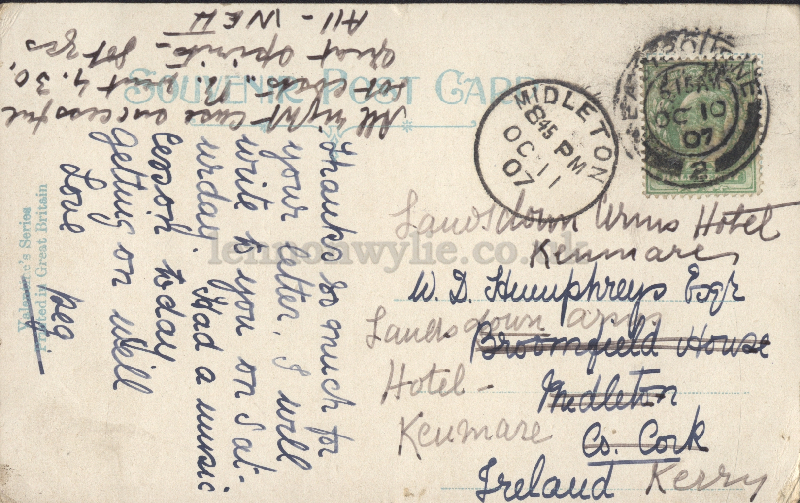 SOUVENIR POST CARD
Valentine's Series
Printed in Great Britain
Thanks so much for
your letter. I will
write to you on Sat-
urday. Had a music
lesson today
getting on well
Love
Peg
All right case successful
past 4.30,
great spirits - got yes
All - WEH
EASTBOURNE
5.15 AM
OC 10
07
2
MIDLETON
8 45 PM
OC 11
07
Lansdown Arms Hotel
Kenmare
W. D. Humphreys Esqr
Lansdown arms
Broomfield House
Hotel -
Midleton
Kenmare
Co. Cork
Ireland Kerry
lennonwylie.co.uk